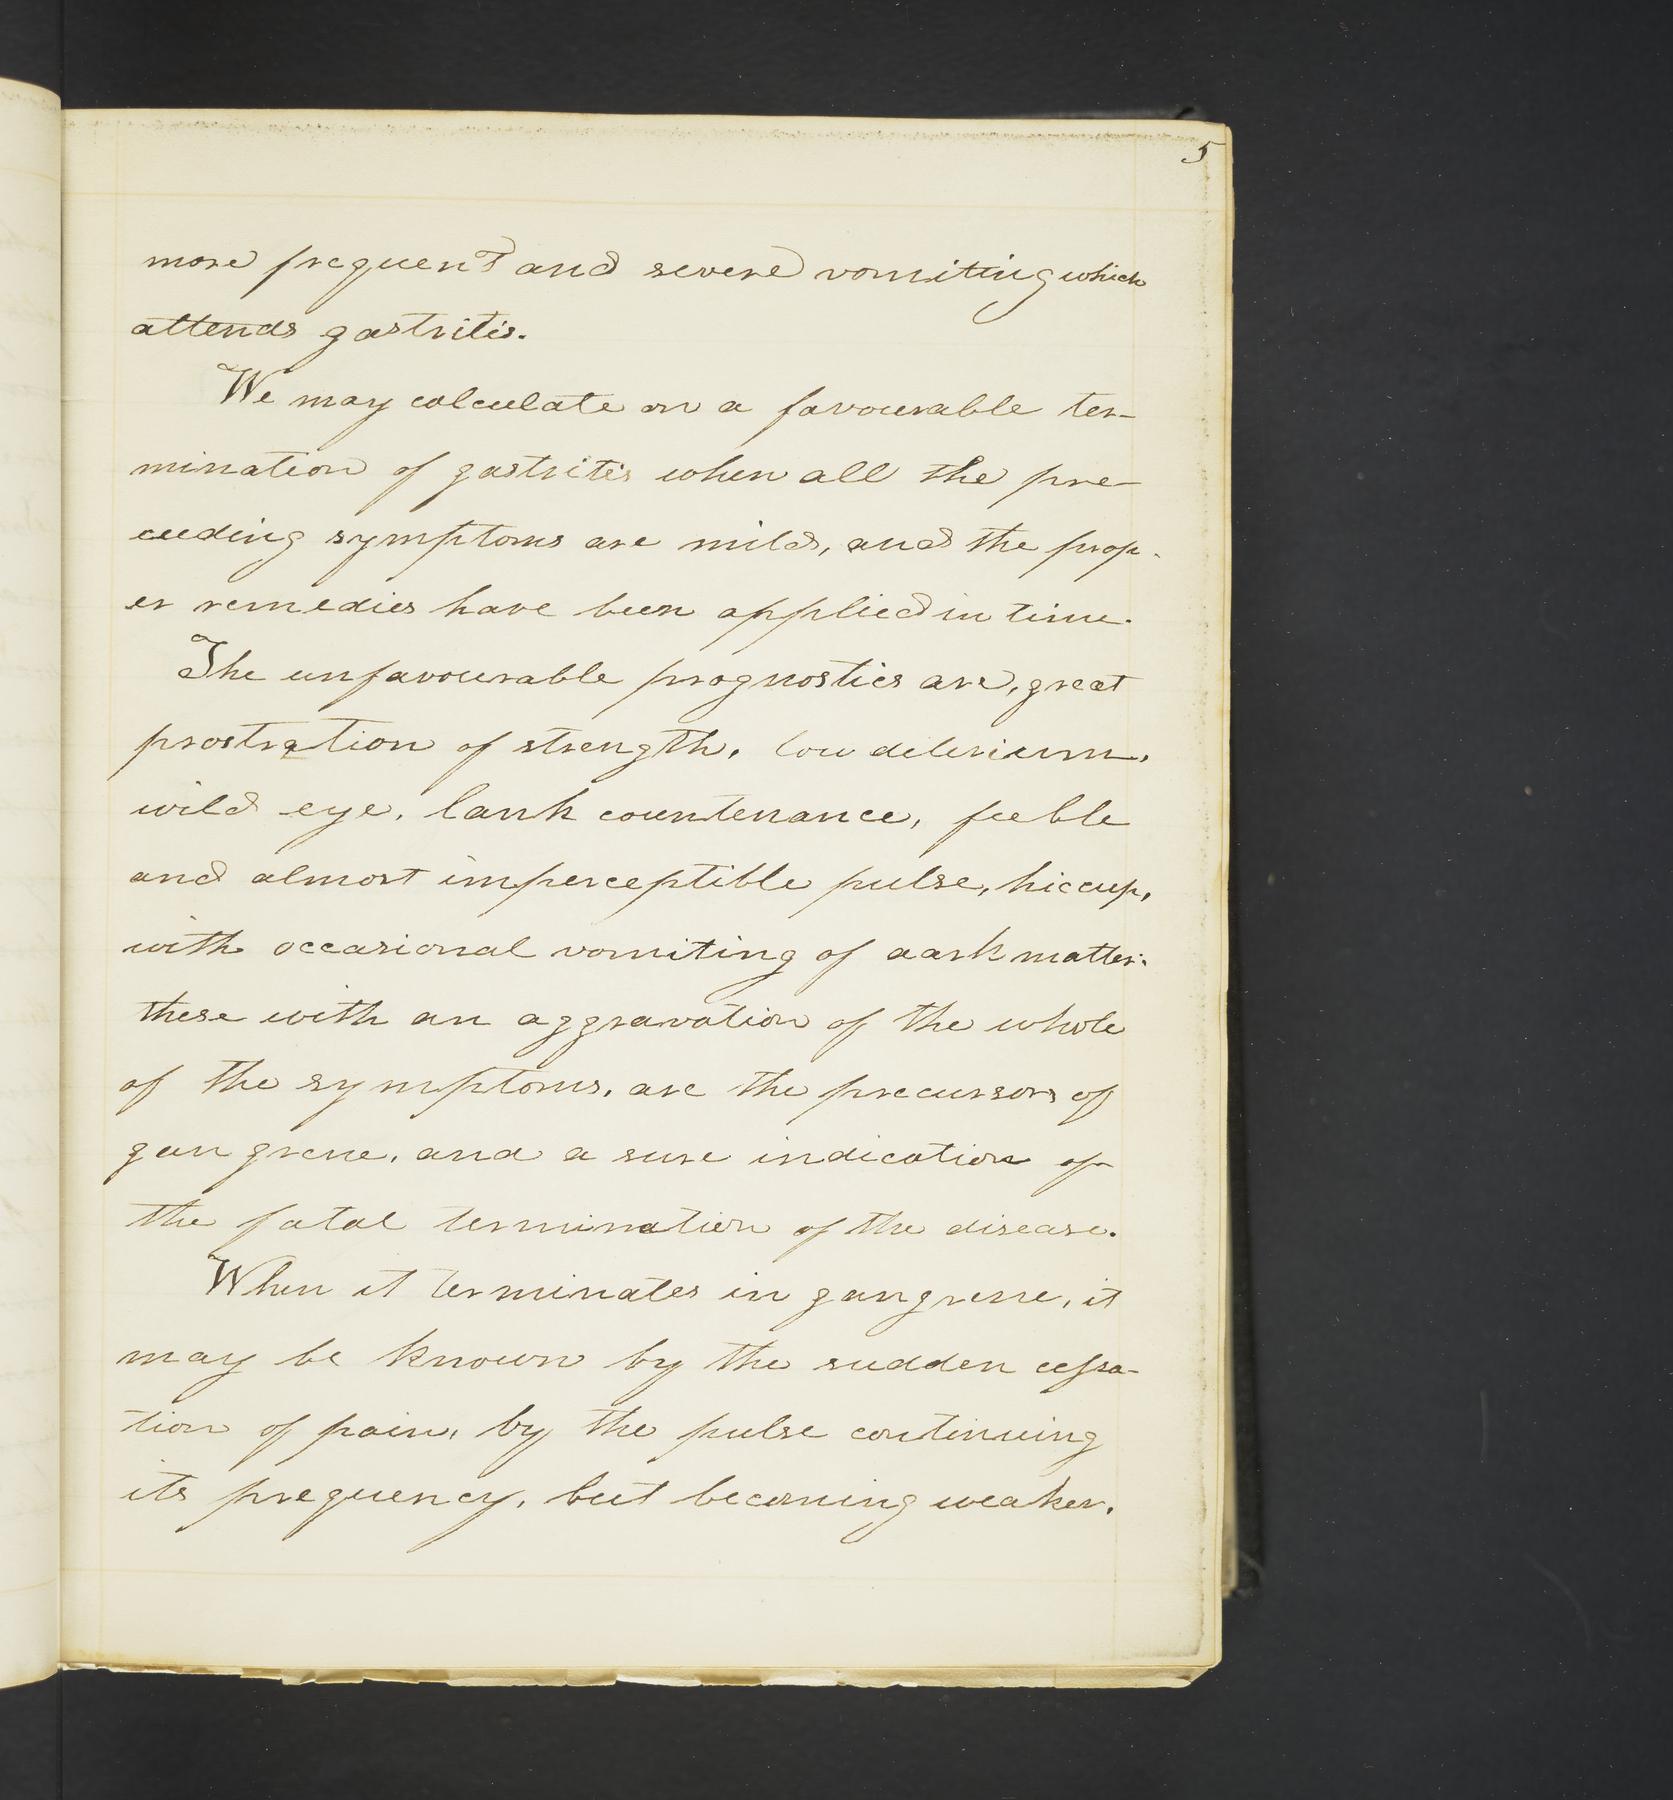 5
more frequent and severe vomiting which
attends gastritis.
We may calculate on a favourable ter-
mination of gastritis when all the pre-
ceeding symptoms are mild, and the prop-
er remedies have been applied in time.
The unfavourable prognostics are, great
prostration of strength, low delerium,
wild eye, lank countenance, feeble
and almost imperceptible pulse, hiccup,
with occasional vomiting of dark matter.
these with an aggravation of the whole
of the symptoms, are the precursors of
gangrene, and a sure indication of
the fatal termination of the disease.
When it terminates in gangrene, it
may be known by the sudden cessa-
tion of pain, by the pulse continuing
its frequency, but becoming weaker.